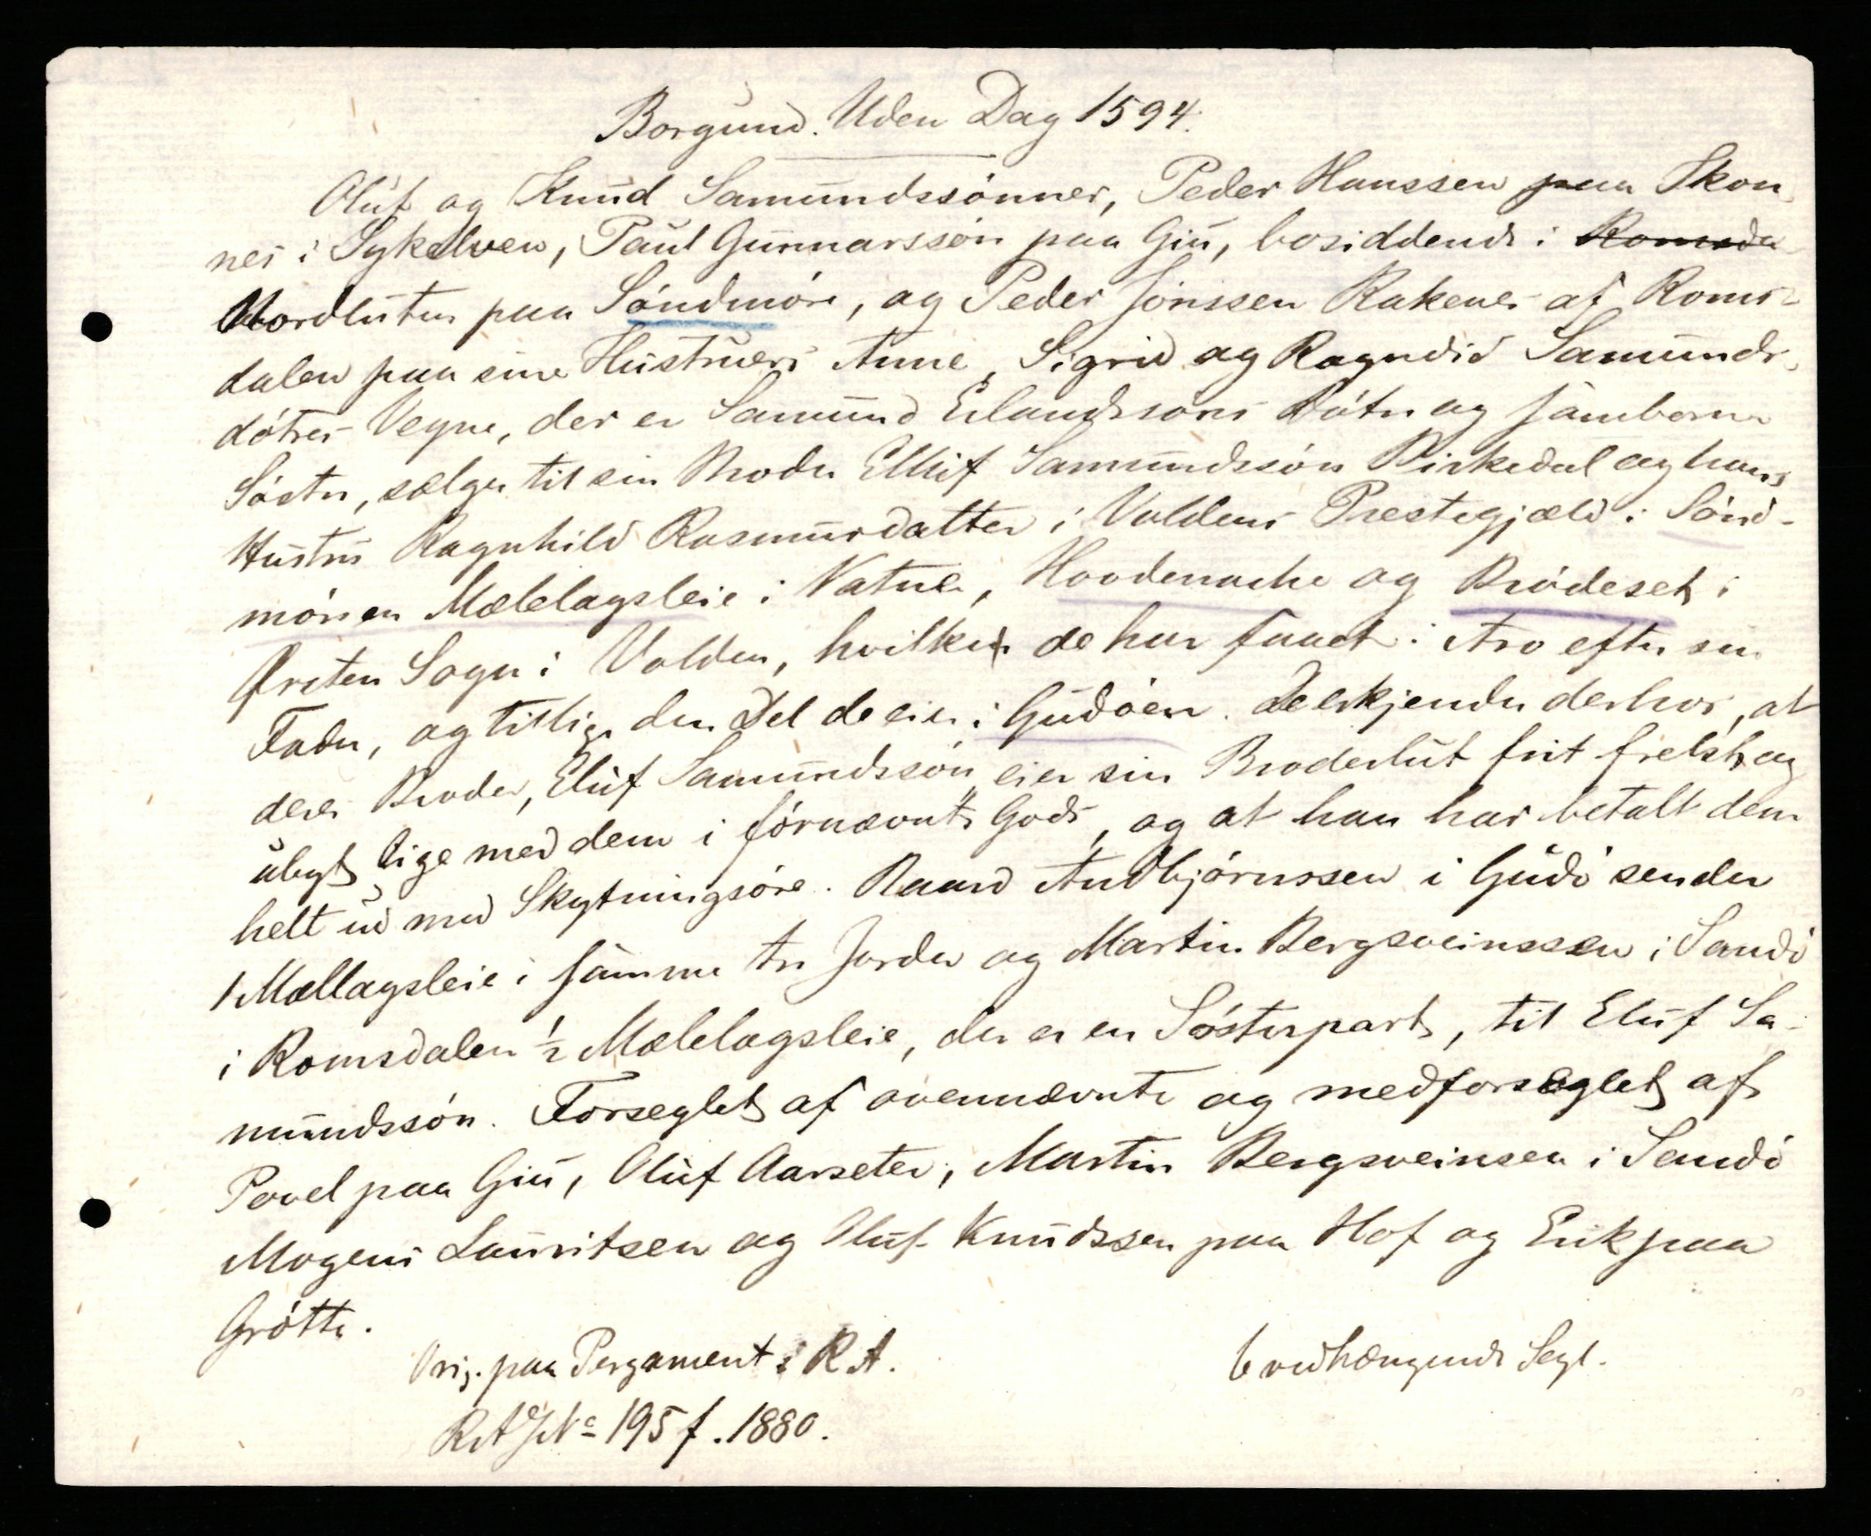 Borgund. Uden Dag 1594.
Oluf og Knud Samundssønner, Peder Hanssen paa Skon-
nes i Sykelven, Paul Gunnarssøn paa Giu, bosiddende i Romsda
Nordluten paa Søndmøre, og Peder Jonssen Rakenes af Roms-
dalen paa sine Hustruers Anne, Sigrid og Ragndid Samunds-
døtres Vegne, der er Samund Erlandssøns Døtre og samborne
Søstre, sælger til sin Broder Elluf Samundssøn Birkedal og hans
Hustru Ragnhild Rasmusdatter i Voldens Prestegjæld i Sønd-
møre en Mælelagsleie i Vatne, Hovdenache og Brødeset i
Ørsten Sogn i Volden, hvilket de har faaet i Arv efter sin
Fader, og tillige den Del de eier i Gudøen. De erkjender derhos, at
deres Broder, Eluf Samundssøn, eier sin Broderlut frit frelst og
ubyt lige med dem i førnævnte Gods, og at han har betalt dem
helt ud med Skytningsøre. Raard Andbjørnssen i Gudø sender
1 Mællagsleie i samme tre Jorder og Martin Bergsveinssen i Sandø
i Romsdalen ½ Mælelagsleie, der er en Søsterpart, til Eluf Sa-
mundssøn. Forseglet af ovennævnte og medforseglet af
Povel paa Giu, Oluf Aarseter, Martin Bergsveinsen i Sandø
Mogens Lauritsen og Oluf Knudssen paa Hof og Erik paa
Grøtte.
Orig. paa Pergament i R A.
6 vedhængende Segl.
RA J No 195 f. 1880.